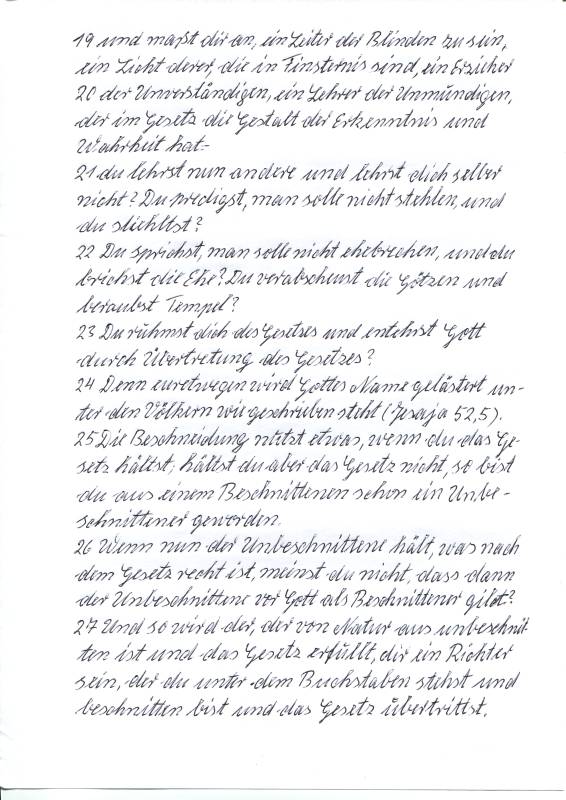 19 und maßt dir an, ein Leiter der Blinden zu sein,
ein Licht derer, die in Finsternis sind, ein Erzieher
20 der Unverständigen, ein Lehrer der Unmündigen,
der im Gesetz die Gestalt der Erkenntnis und
Wahrheit hat-
21 du lehrst nun andere und lehrst dich selber
nicht? Du predigst, man solle nicht stehlen, und
du stiehlst?
22 Du sprichst, man solle nicht ehebrechen, und du
brichst die Ehe? Du verabscheust die Götzen und
beraubst Tempel?
23 Du rühmst dich des Gesetzes und entehrst Gott
durch Übertretung des Gesetzes?
24 Denn euretwegen wird Gottes Name gelästert un-
ter den Völkern wie geschrieben steht (Jesaja 52,5).
25 Die Beschneidung nützt etwas, wenn du das Ge-
setz hältst; hältst du aber das Gesetz nicht, so bist
du aus einem Beschnittenen schon ein Unbe-
schnittener geworden.
26 Wenn nun der Unbeschnittene hält, was nach
dem Gesetz recht ist, meinst du nicht, dass dann
der Unbeschnittene vor Gott als Beschnittener gilt?
27 Und so wird der, der von Natur aus unbeschnit-
ten ist und das Gesetz erfüllt, dir ein Richter
sein, der du unter dem Buchstaben stehst und
beschnitten bist und das Gesetz übertrittst.